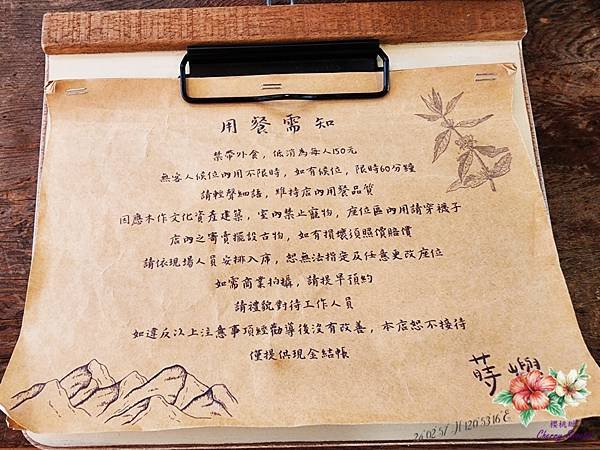 用餐需知
禁帶外食，低消為每人150元
無客人候位內用不限時，如有候位，限時60分鐘
請輕聲細語，維持店內用餐品質
因應木作文化資產建築，室內禁止寵物，座位區內用請穿襪子
店內之寄賣擺設古物，如有損壞須照價賠償
請依現場人員安排入席，恕無法指定及任意更改座位
如需商業拍攝，請提早預約
請禮貌對待工作人員
如違反以上注意事項經勸導後沒有改善，本店恕不接待
僅提供現金結帳
蒔嶼
櫻桃
Cherry